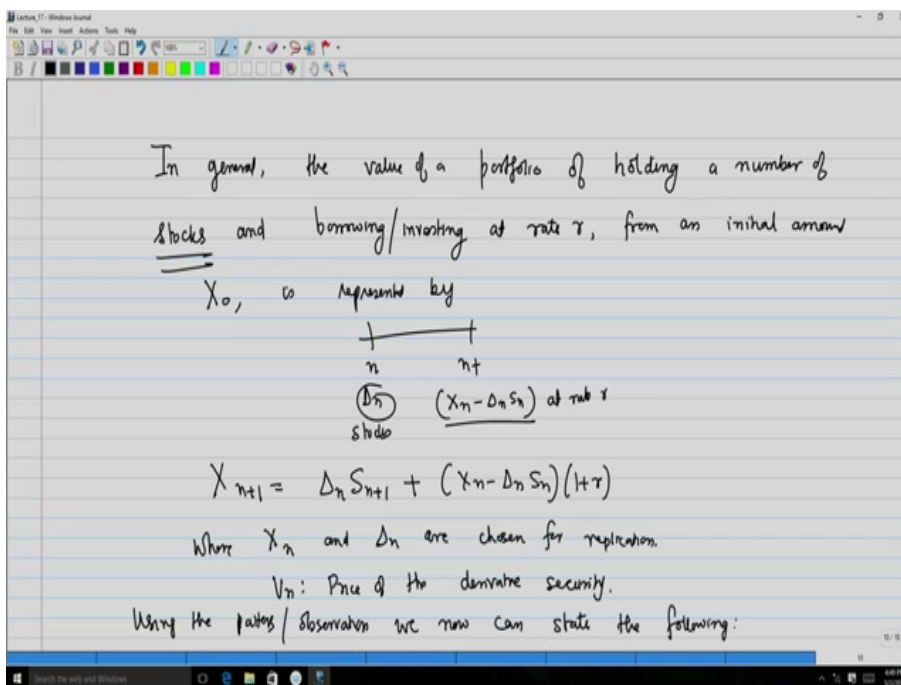 Lecture_17 - Windows Journal
File Edit View Insert Actions Tools Help
B I
In general, the value of a portfolio of holding a number of
stocks and borrowing/investing at rate r, from an initial amount
X₀, is represented by
n n+
Δn (Xn - Δn Sn) at rate r
stocks
X n+1 = Δn Sn+1 + (Xn - Δn Sn)(1+r)
Where Xn and Δn are chosen for replication.
Vn: Price of the derivative security.
Using the pattern/observation we now can state the following:
10/10
10
Search the web and Windows